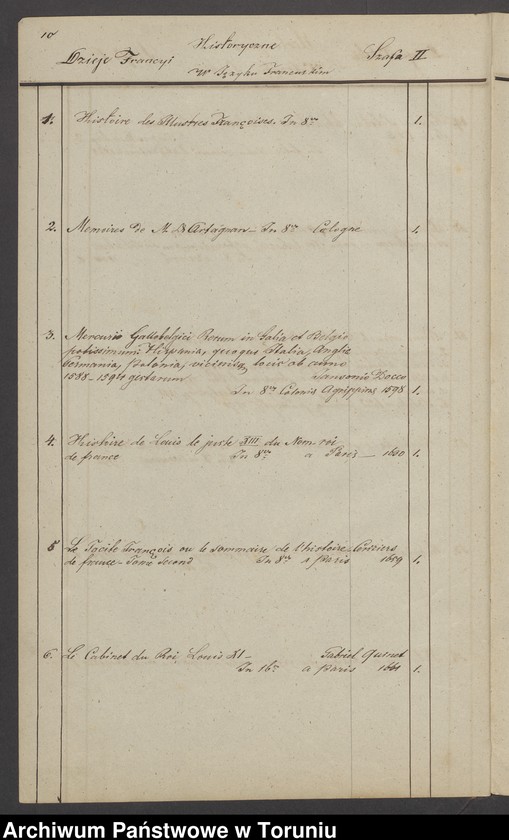 10
Historyczne
Dzieje Francyi
Szafa II
w Języku Francuskim
1. Histoire des Illustres Françoises. In 8vo 1.
2. Memoires de M. D'Artagnan - In 8vo Cologne 1.
3. Mercurio Gallobelgici Rerum in Galia et Belgio
potissimum Hispania, quoque Italia, Anglie
Germania, Polonia, vicinisq locis ab anno
1588 - 1594 gestarum Jansonio Docco
In 8vo Colonia Agrippina 1598 1.
4. Histoire de Louis le juste XIII du Nom roi
de france In 8vo a Paris -
1.
5 Le Tacite François ou le sommaire de l'histoire
de france - Tome Second In 8vo a Paris 1659 1.
6. Le Cabinet du Roi, Louis XI - Gabriel Quinet
In 16o a Paris 1661 1.
Archiwum Państwowe w Toruniu